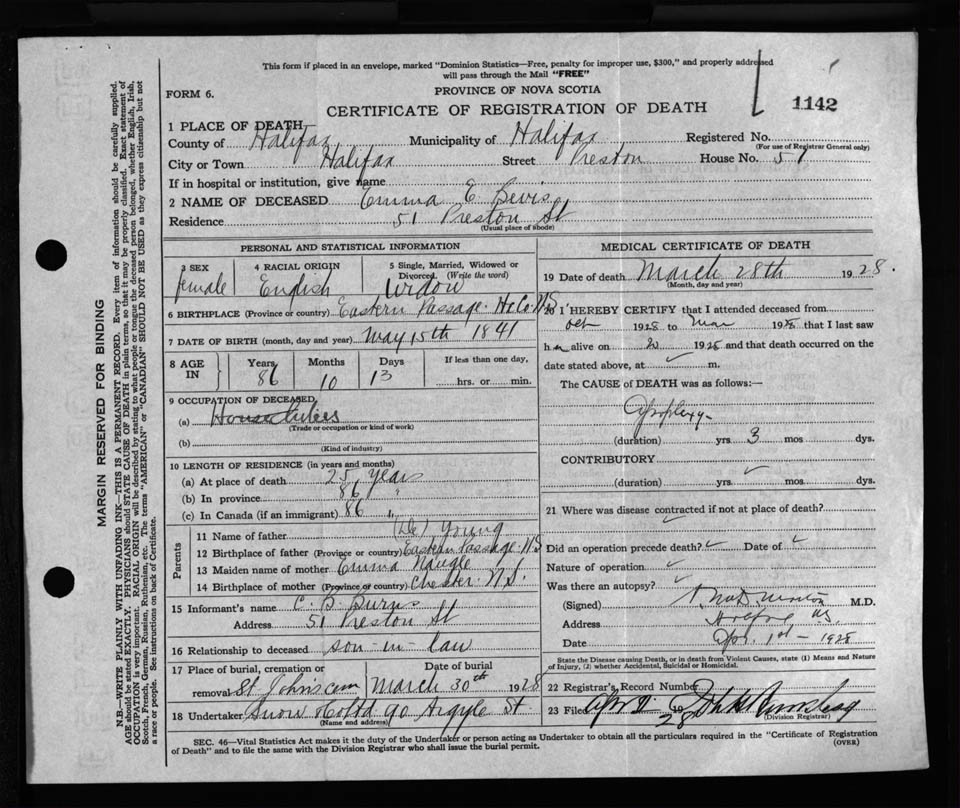 This form if placed in an envelope, marked "Dominion Statistics—Free, penalty for improper use, $300," and properly addressed
will pass through the Mail "FREE"
FORM 6.
PROVINCE OF NOVA SCOTIA
CERTIFICATE OF REGISTRATION OF DEATH
1142
1 PLACE OF DEATH—
County of Halifax Municipality of Halifax Registered No.
(For use of Registrar General only)
City or Town Halifax Street Preston House No. 51
If in hospital or institution, give name
2 NAME OF DECEASED Emma E Bevis
Residence 51 Preston St
(Usual place of abode)
PERSONAL AND STATISTICAL INFORMATION
3 SEX female
4 RACIAL ORIGIN English
5 Single, Married, Widowed or Divorced. (Write the word) Widow
6 BIRTHPLACE (Province or country) Eastern Passage. Hx Co N.S.
7 DATE OF BIRTH (month, day and year) May 15th 1841
8 AGE IN
Years Months Days If less than one day,
86 10 13 hrs. or min.
9 OCCUPATION OF DECEASED
(a)
(Trade or occupation or kind of work)
(b)
(Kind of industry)
10 LENGTH OF RESIDENCE (in years and months)
(a) At place of death 25 years
(b) In province 86 "
(c) In Canada (if an immigrant) 86 "
Parents
11 Name of father (De) Young
12 Birthplace of father (Province or country) Eastern Passage. N.S
13 Maiden name of mother Emma Naugle
14 Birthplace of mother (Province or country) Chester N.S.
15 Informant's name C. B. Burns
Address 51 Preston St
16 Relationship to deceased son-in-law
17 Place of burial, cremation or removal St John's cem
Date of burial March 30th 1928
18 Undertaker Snow & Co Ltd 90 Argyle St.
(Name and address)
MEDICAL CERTIFICATE OF DEATH
19 Date of death March 28th 1928.
(Month, day and year)
20 I HEREBY CERTIFY that I attended deceased from
Oct 1928 to Mar 1928 that I last saw
her alive on 1928 and that death occurred on the
date stated above, at m.
The CAUSE of DEATH was as follows:—
Apoplexy
(duration) yrs 3 mos dys.
CONTRIBUTORY
(duration) yrs. mos. dys.
21 Where was disease contracted if not at place of death?
Did an operation precede death? Date of
Nature of operation
Was there an autopsy?
(Signed) M.D.
Address Halifax N.S.
Date Apr. 1st — 1928
State the Disease causing Death, or in death from Violent Causes, state (1) Means and Nature
of Injury, (2) whether Accidental, Suicidal or Homicidal.
22 Registrar's Record Number
23 Filed Apr 2 1928
(Division Registrar)
SEC. 46—Vital Statistics Act makes it the duty of the Undertaker or person acting as Undertaker to obtain all the particulars required in the "Certificate of Registration
of Death" and to file the same with the Division Registrar who shall issue the burial permit. (OVER)
MARGIN RESERVED FOR BINDING
N.B.—WRITE PLAINLY WITH UNFADING INK—THIS IS A PERMANENT RECORD. Every item of information should be carefully supplied.
AGE should be stated EXACTLY. PHYSICIANS should STATE CAUSE OF DEATH in plain terms, so that it may be properly classified. Exact statement of
OCCUPATION is very important. RACIAL ORIGIN will be described by stating to what people or tongue the deceased person belonged, whether English, Irish,
Scotch, French, German, Russian, Ruthenian, etc. The terms "AMERICAN" or "CANADIAN" SHOULD NOT BE USED as they express citizenship but not
a race or people. See instructions on back of Certificate.